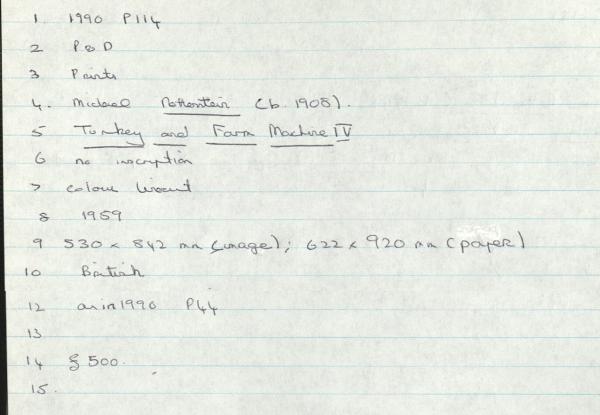 1. 1990 P114
2 P & D
3 Prints
4. Michael Rothenstein (b. 1908).
5 Turkey and Farm Machine IV
6 no inscription
7 colour linocut
8 1959
9 530 x 842 mm (image); 622 x 920 mm (paper)
10 British
12 as in 1990 P44
13
14 £ 500.
15.